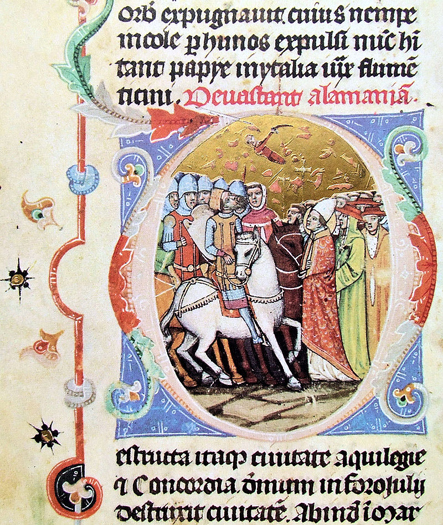 orb expugnauit cuius nempe
incole ꝑ hunos expulsi nūc hi
tant papye in ytalia iux flumē
ticini . Deuastant alamaniā .
estructa itaqꝫ ciuitate aquilegie
⁊ Concordia om̄ium in foroJulij
destruxit ciuitatē . Abinde ī mar